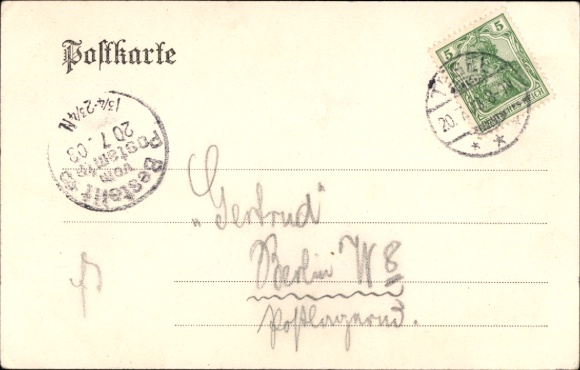 Postkarte
5
DEUTSCHES REICH
20. 7.
Bestellt
vom
Postamte
20 7. 03
1¾-2¾N
„Gertrud“
Berlin W 8
Postlagernd.